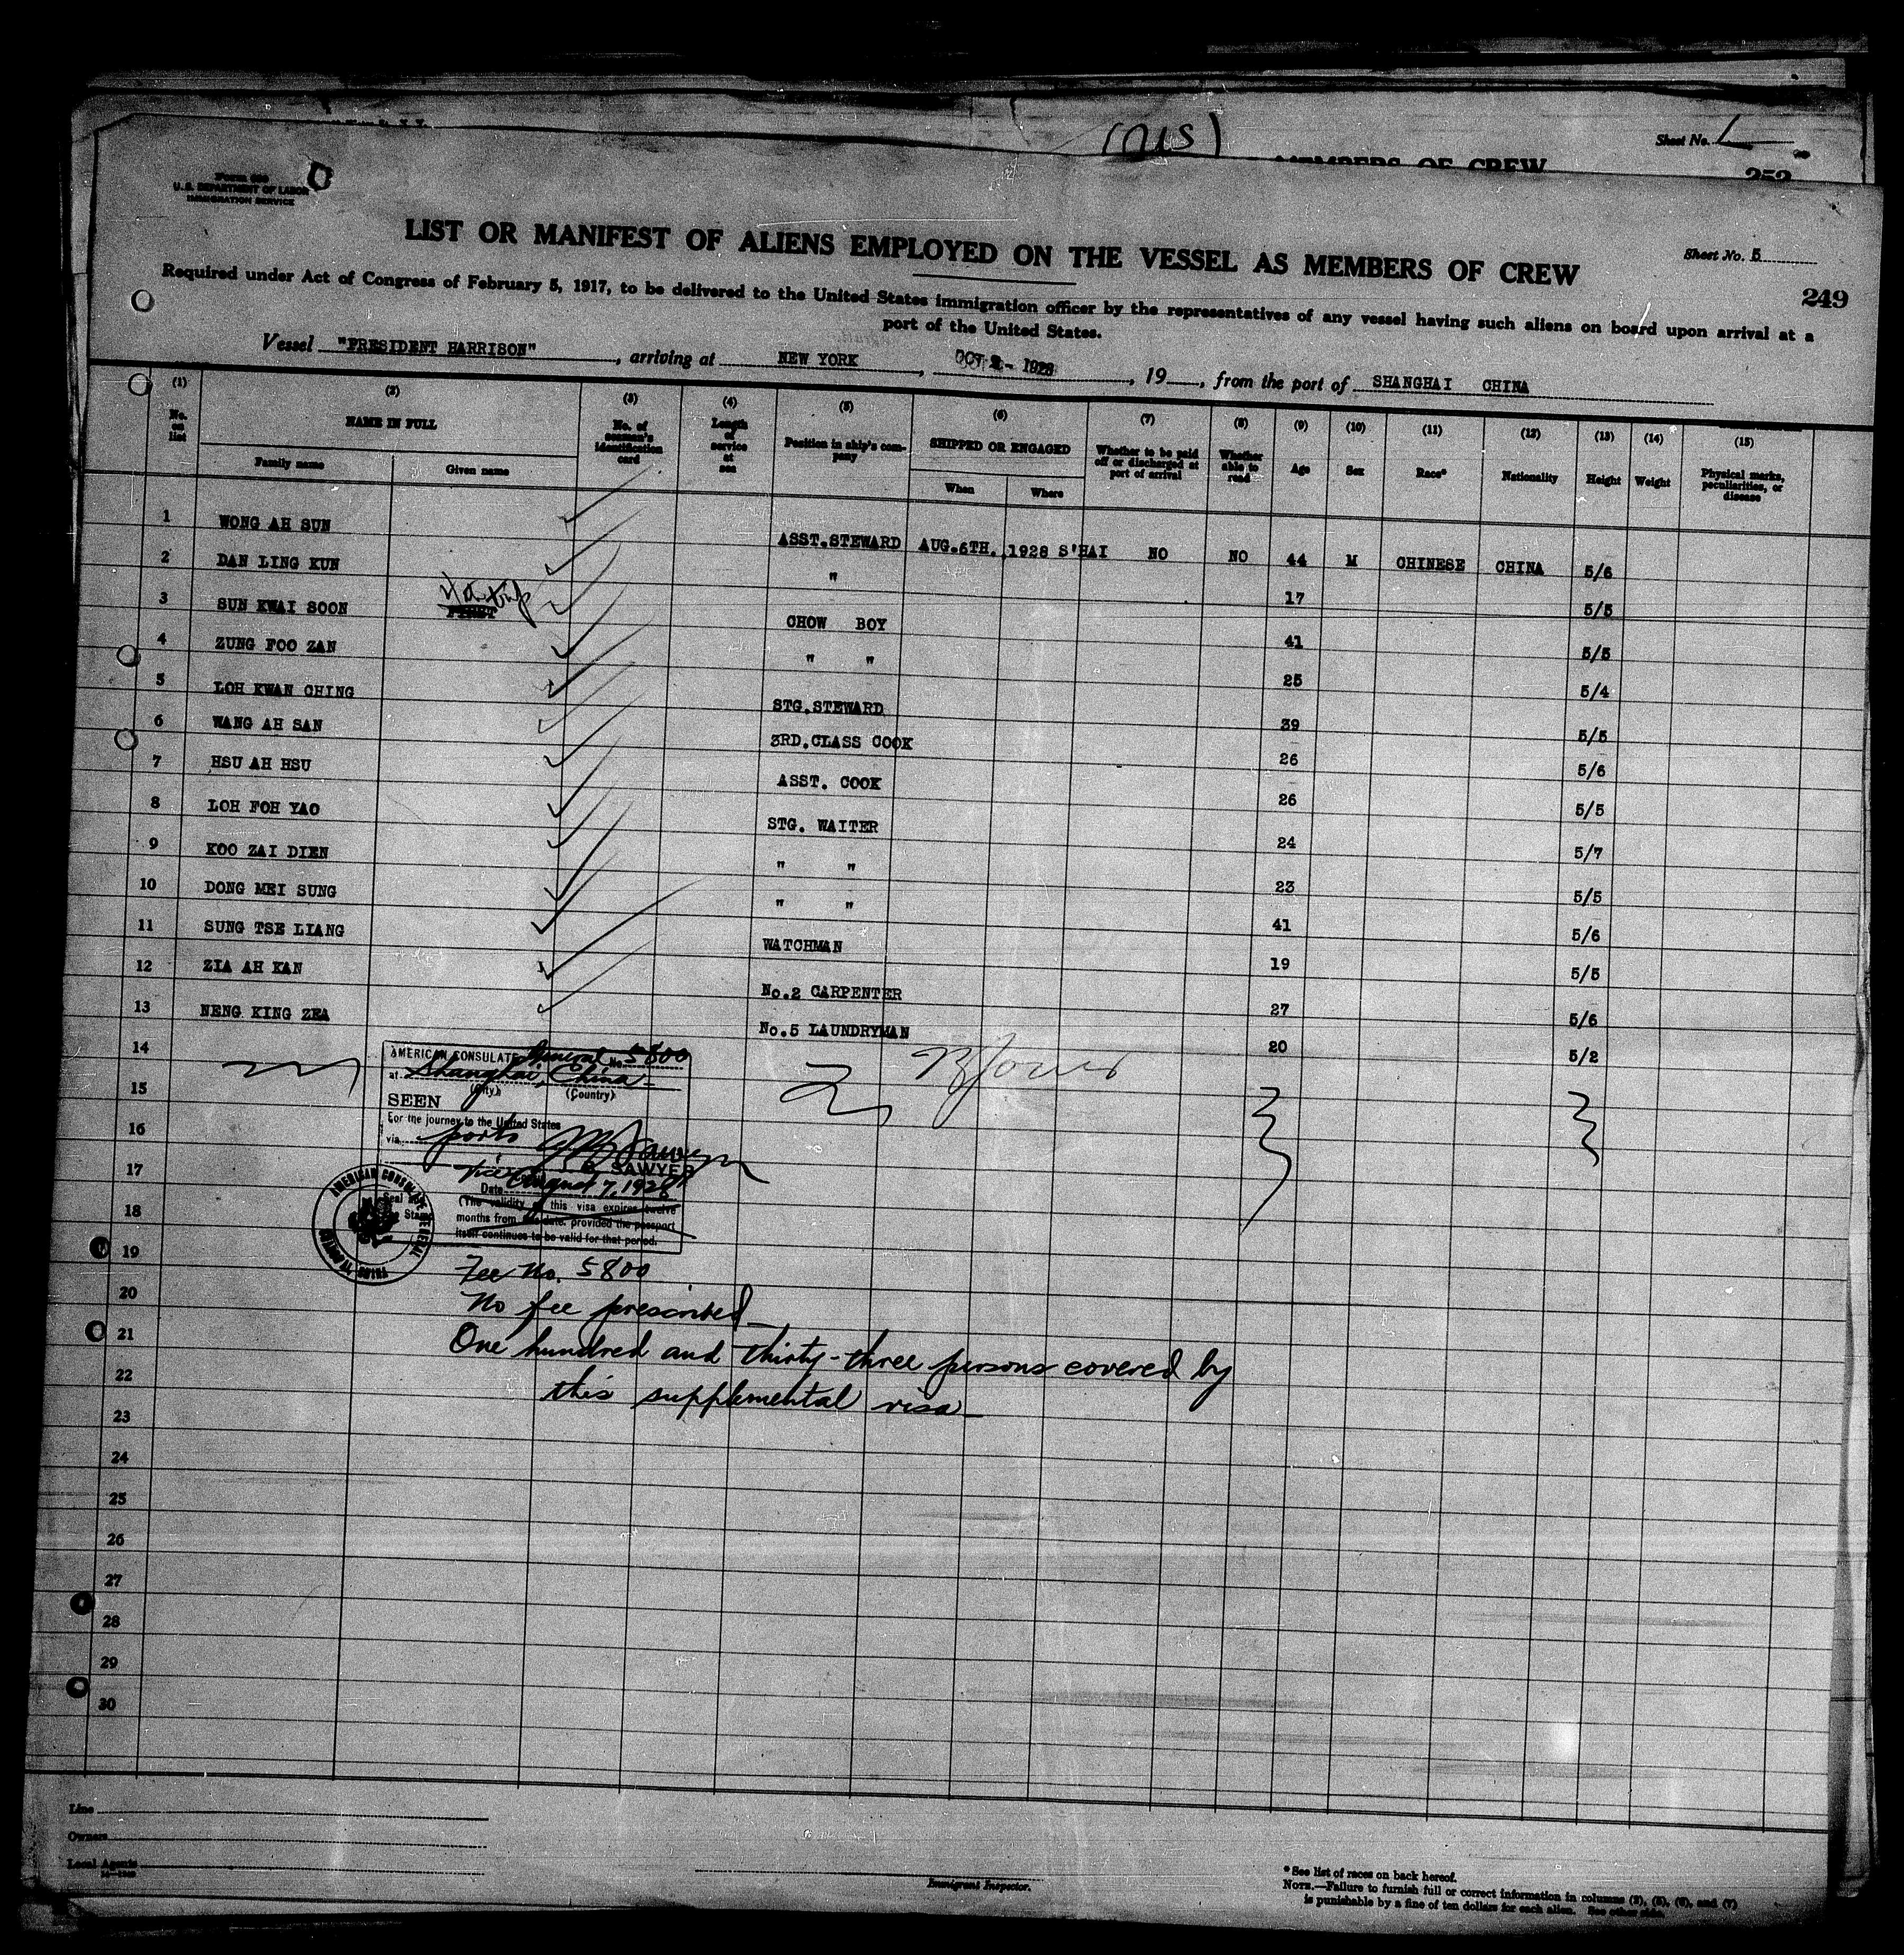 (US)
MEMBERS OF CREW
Sheet No.
252
U.S. DEPARTMENT OF LABOR
IMMIGRATION SERVICE
LIST OR MANIFEST OF ALIENS EMPLOYED ON THE VESSEL AS MEMBERS OF CREW
Sheet No. 5
249
Required under Act of Congress of February 5, 1917, to be delivered to the United States immigration officer by the representatives of any vessel having such aliens on board upon arrival at a
port of the United States.
Vessel "PRESIDENT HARRISON", arriving at NEW YORK, OCT 2 - 1928, 19 , from the port of SHANGHAI CHINA
(1) (2) (3) (4) (5) (6) (7) (8) (9) (10) (11) (12) (13) (14) (15)
No. on list NAME IN FULL No. of seaman's identification card Length of service at sea Position in ship's company SHIPPED OR ENGAGED Whether to be paid off or discharged at port of arrival Whether able to read Age Sex Race* Nationality Height Weight Physical marks, peculiarities, or disease
Family name Given name When Where
1 WONG AH SUN ASST.STEWARD AUG.6TH. 1928 S'HAI NO NO 44 M CHINESE CHINA 5/6
2 DAN LING KUN " 17 5/5
3 SUN KWAI SOON CHOW BOY 41 5/5
4 ZUNG FOO ZAN " " 25 5/4
5 LOH KWAN CHING STG.STEWARD 39 5/5
6 WANG AH SAN 3RD.CLASS COOK 26 5/6
7 HSU AH HSU ASST. COOK 26 5/5
8 LOH FOH YAO STG. WAITER 24 5/7
9 KOO ZAI DIEN " " 23 5/5
10 DONG MEI SUNG " " 41 5/6
11 SUNG TSE LIANG WATCHMAN 19 5/5
12 ZIA AH KAN No.2 CARPENTER 27 5/6
13 NENG KING ZEA No.5 LAUNDRYMAN 20 5/2
14
15
16
17
18
19
20
21
22
23
24
25
26
27
28
29
30
AMERICAN CONSULATE General No. 5800
at Shanghai, China
(City) (Country)
SEEN
For the journey to the United States
via ports
SAWYER
Vice
Date August 7, 1928
(The validity of this visa expires twelve
months from this date. provided the passport
itself continues to be valid for that period.
Seal and
Stamp
AMERICAN CONSULATE GENERAL
SHANGHAI, CHINA
Fee No. 5800
No fee prescribed
One hundred and thirty-three persons covered by
this supplemental visa
Line
Owners
Local Agents
Immigrant Inspector.
* See list of races on back hereof.
NOTE.—Failure to furnish full or correct information in columns (2), (5), (6), and (7)
is punishable by a fine of ten dollars for each alien. See other side.